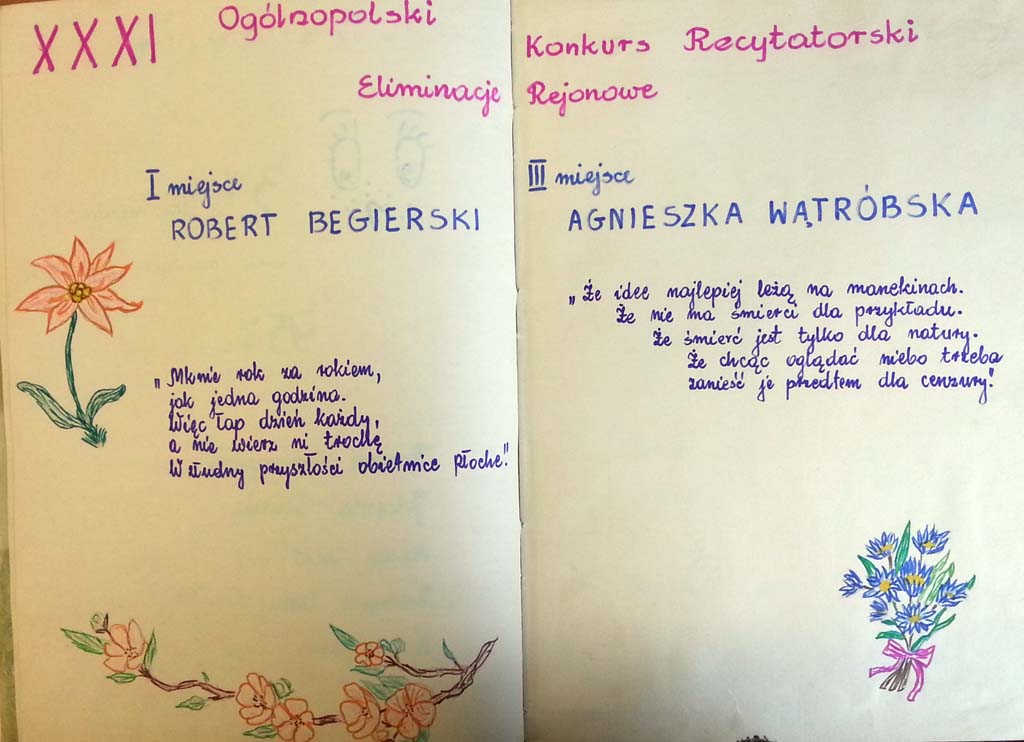 XXXI Ogólnopolski Konkurs Recytatorski
Eliminacje Rejonowe
I miejsce
ROBERT BEGIERSKI
„Mknie rok za rokiem,
jak jedna godzina.
Więc łap dzień każdy,
a nie wierz ni trochę
W złudny przyszłości obietnice płoche."
III miejsce
AGNIESZKA WĄTRÓBSKA
„Że idee najlepiej leżą na manekinach.
Że nie ma śmierci dla przykładu.
Że śmierć jest tylko dla natury.
Że chcąc oglądać niebo trzeba
zanieść je przedtem dla cenzury."